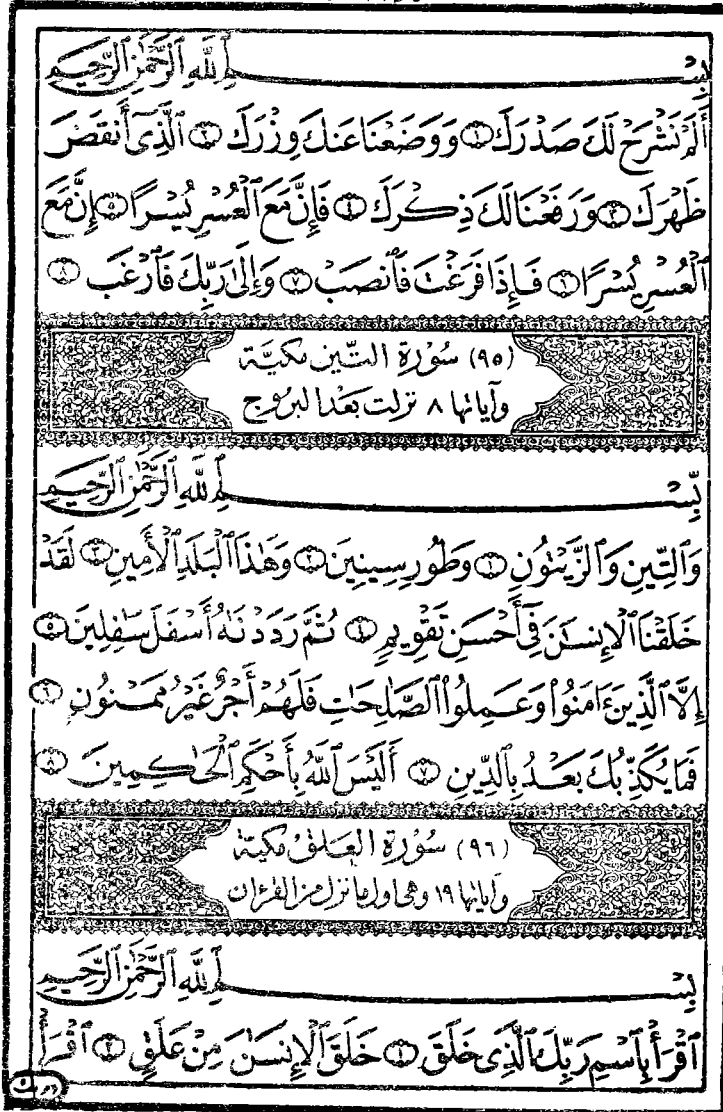 بِسْمِ ٱللَّهِ ٱلرَّحْمَٰنِ ٱلرَّحِيمِ
أَلَمْ نَشْرَحْ لَكَ صَدْرَكَ ١ وَوَضَعْنَا عَنكَ وِزْرَكَ ٢ ٱلَّذِىٓ أَنقَضَ
ظَهْرَكَ ٣ وَرَفَعْنَا لَكَ ذِكْرَكَ ٤ فَإِنَّ مَعَ ٱلْعُسْرِ يُسْرًا ٥ إِنَّ مَعَ
ٱلْعُسْرِ يُسْرًا ٦ فَإِذَا فَرَغْتَ فَٱنصَبْ ٧ وَإِلَىٰ رَبِّكَ فَٱرْغَب ٨
(٩٥) سُورَةِ التِّين مَكيَّة
وآياتها ٨ نزلت بَعْد البرُوج
بِّسْمِ ٱللَّهِ ٱلرَّحْمَٰنِ ٱلرَّحِيمِ
وَٱلتِّينِ وَٱلزَّيْتُونِ ١ وَطُورِ سِينِينَ ٢ وَهَٰذَا ٱلْبَلَدِ ٱلْأَمِينِ ٣ لَقَدْ
خَلَقْنَا ٱلْإِنسَٰنَ فِىٓ أَحْسَنِ تَقْوِيمٍ ٤ ثُمَّ رَدَدْنَٰهُ أَسْفَلَ سَٰفِلِينَ ٥
إِلَّا ٱلَّذِينَ ءَامَنُوا۟ وَعَمِلُوا۟ ٱلصَّٰلِحَٰتِ فَلَهُمْ أَجْرٌ غَيْرُ مَمْنُونٍ ٦
فَمَا يُكَذِّبُكَ بَعْدُ بِٱلدِّينِ ٧ أَلَيْسَ ٱللَّهُ بِأَحْكَمِ ٱلْحَٰكِمِينَ ٨
(٩٦) سُورَةِ العَلق مَكيَّة
وآياتها ١٩ وهى اول ما نزل من القرءان
بِسْمِ ٱللَّهِ ٱلرَّحْمَٰنِ ٱلرَّحِيمِ
ٱقْرَأْ بِٱسْمِ رَبِّكَ ٱلَّذِى خَلَقَ ١ خَلَقَ ٱلْإِنسَٰنَ مِنْ عَلَقٍ ٢ ٱقْرَأْ